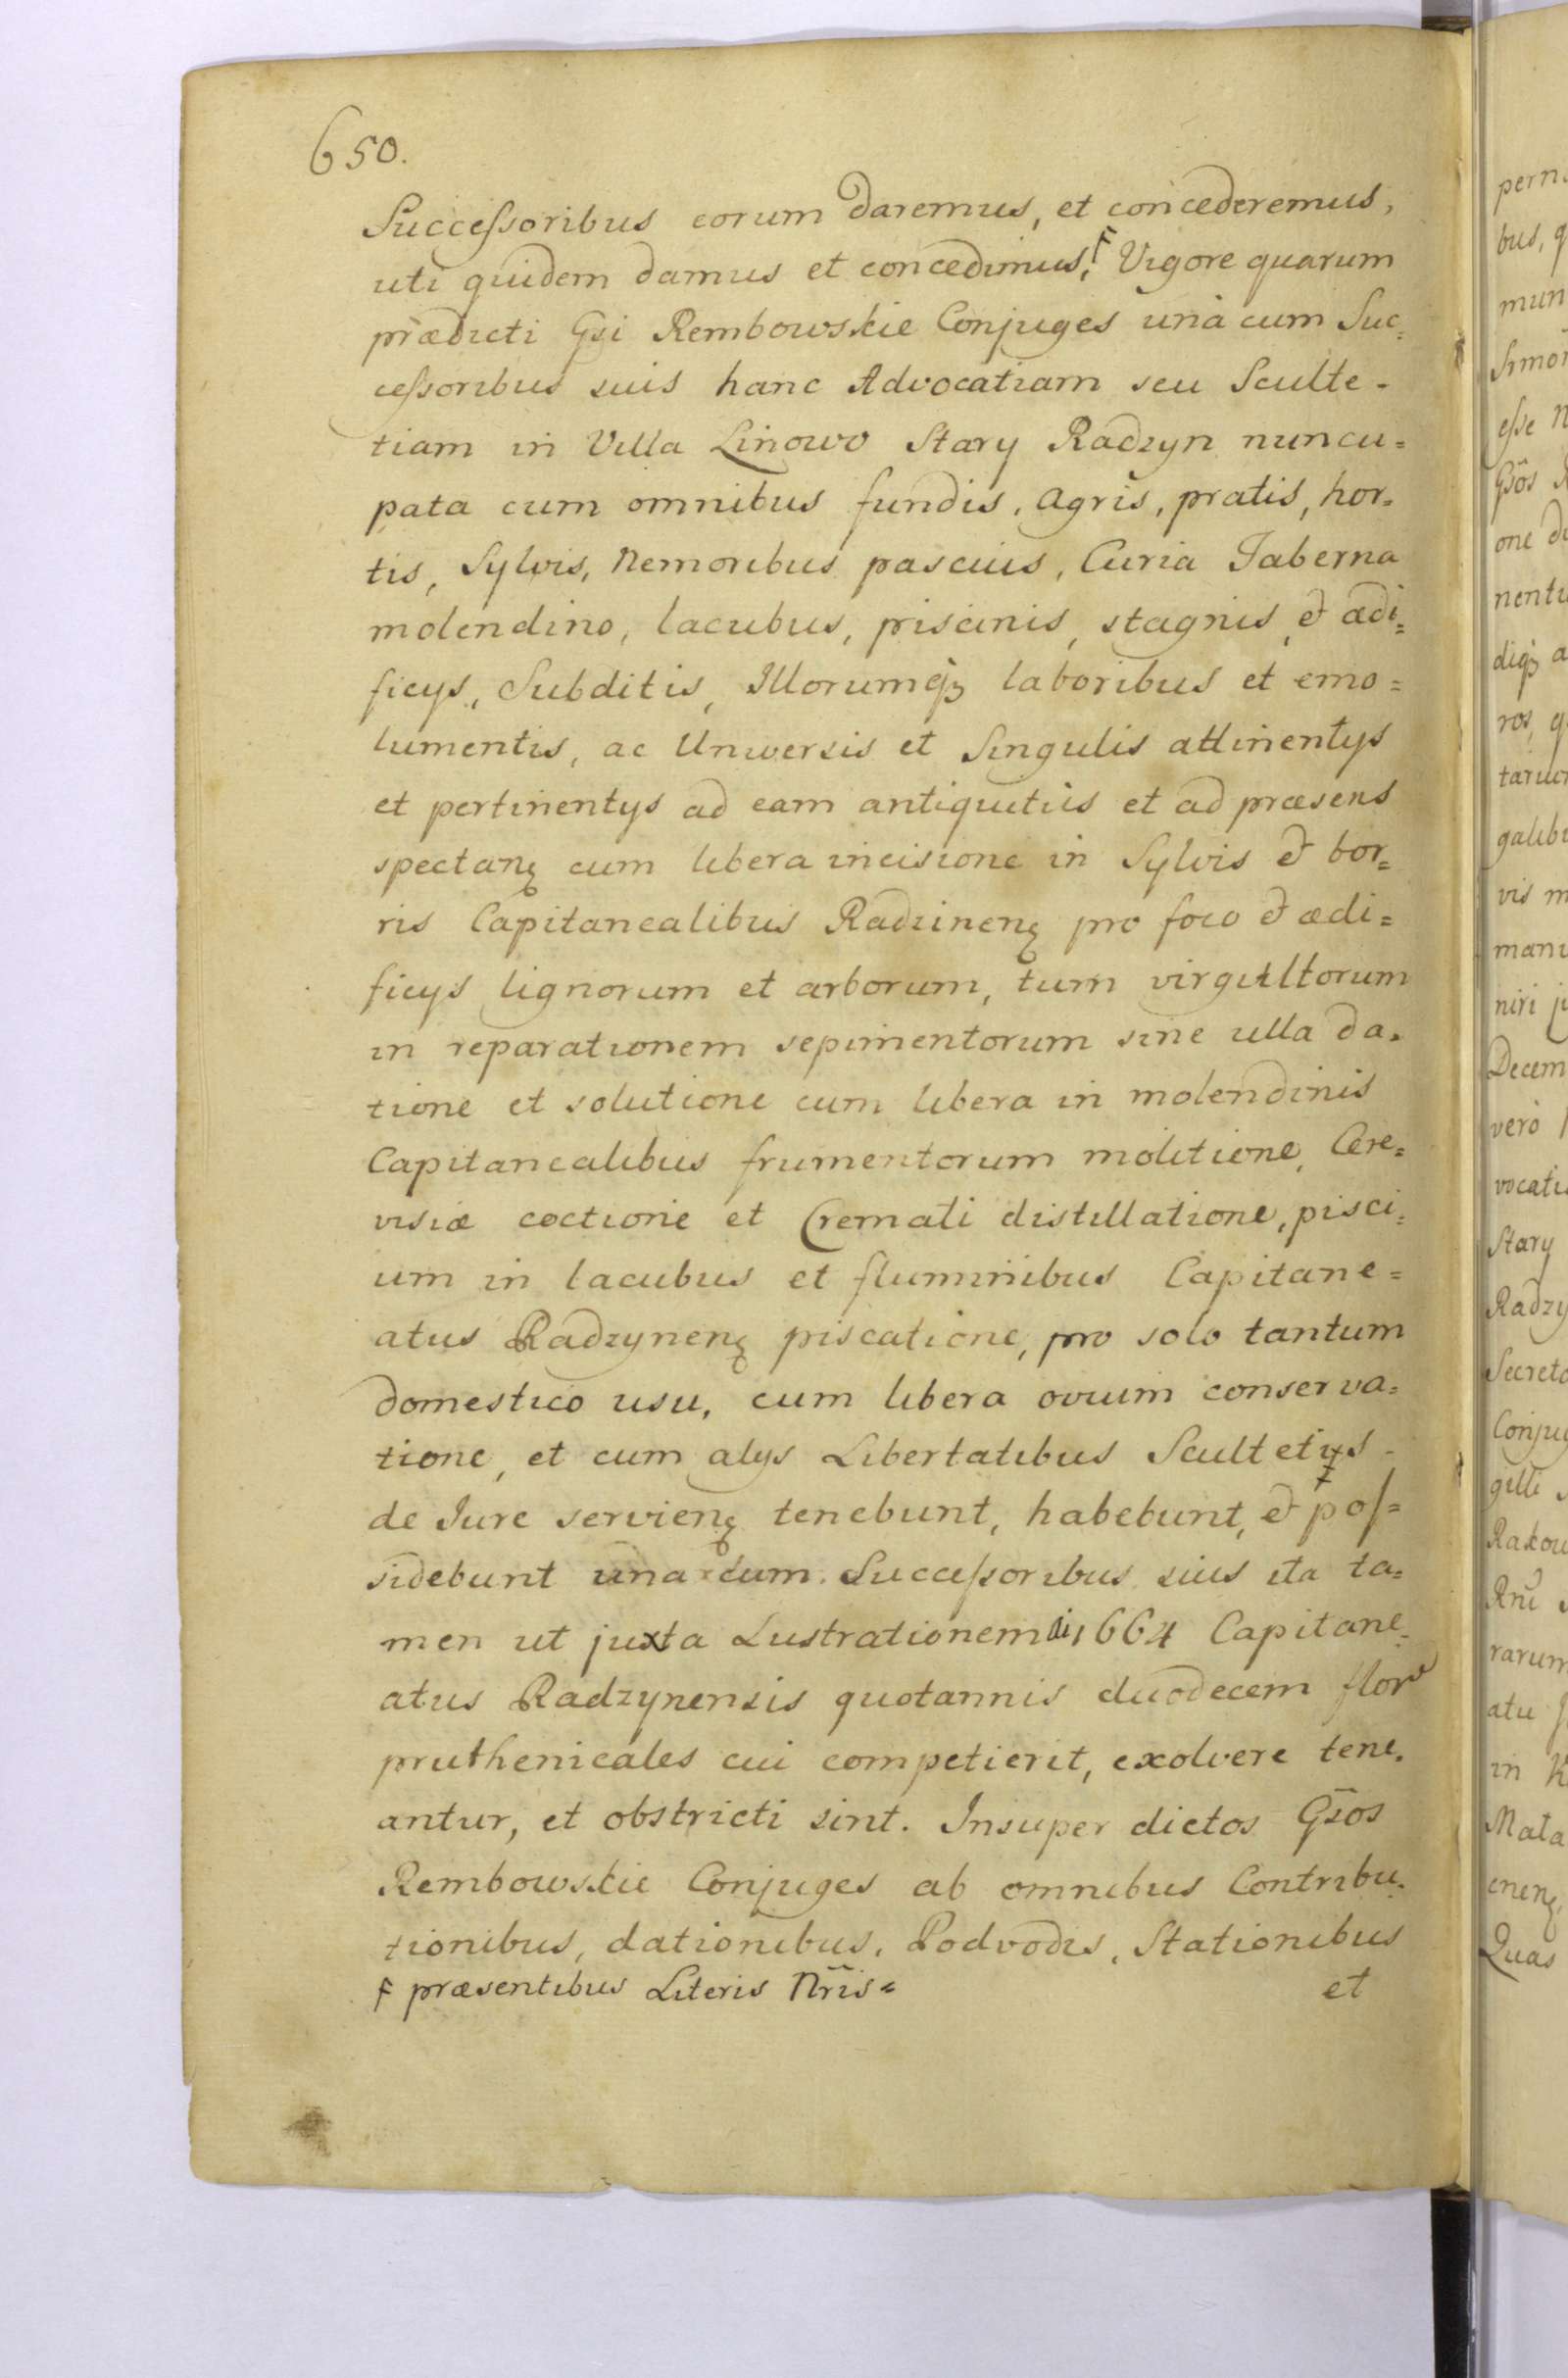 650.
Succeſsoribus eorum daremus, et concederemus,
uti quidem damus et concedimus,F Vigore quarum
prædicti Gsi Rembowskie Conjuges unà cum Suc=
ceſsoribus suis hanc Advocatiam seu Sculte-
tiam in Villa Linowo Stary Radzyn nuncu=
pata cum omnibus fundis, agris, pratis, hor=
tis, Sylvis, Nemoribus pascuis, Curia Taberna
molendino, lacubus, piscinis, stagnis, & ædi=
ficys, Subditis, Illorumqꝫ laboribus et emo=
lumentis, ac Universis et Singulis attinentys
et pertinentys ad eam antiquitus et ad præsens
spectanꝫ cum libera incisione in Sylvis & bor=
ris Capitanealibus Radzinenꝫ pro foco & ædi=
ficys lignorum et arborum, tum virgultorum
in reparationem sepimentorum sine ulla da=
tione et solutione cum libera in molendinis
Capitanealibus frumentorum molitione, Cere=
visiæ coctione et Cremati distillatione, pisci=
um in lacubus et fluminibus Capitane=
atus Radzynenꝫ piscatione, pro solo tantum
domestico usu, cum libera ovium conserva=
tione, et cum alys Libertatibus Scultetys-
de Jure servienꝫ tenebunt, habebunt, & poſ=
sidebunt una cum Succeſsoribus suis ita ta=
men ut juxta Lustrationem ai 1664 Capitane=
atus Radzynensis quotannis duodecem flor
pruthenicales cui competierit, exolvere tene=
antur, et obstricti sint. Insuper dictos Gsos
Rembowskie Conjuges ab omnibus Contribu=
tionibus, dationibus, Podvodis, Stationibus
F præsentibus Literis Nris=
et
perni
bus, q
mun
Simon
eſse N
Gsos
one di
nentu
diqꝫ a
ros, q
galibu
vis m
manu
niri ju
Decem
verò
vocatio
Stary
Radzy
Secreto
Conjug
gilli
Rakow
rarum
atu
in K
Mala
enenꝫ
Quas